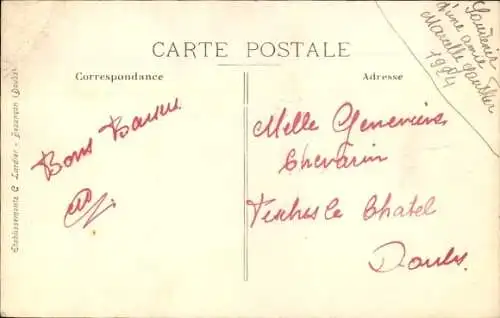 Souvenir
d'une amie
Marcelle
1924
CARTE POSTALE
Correspondance
Adresse
Bons Baisers
Melle Geneviève
Chevarin
le Chatel
Doubs
Etablissements C. Lardier - Besançon (Doubs)